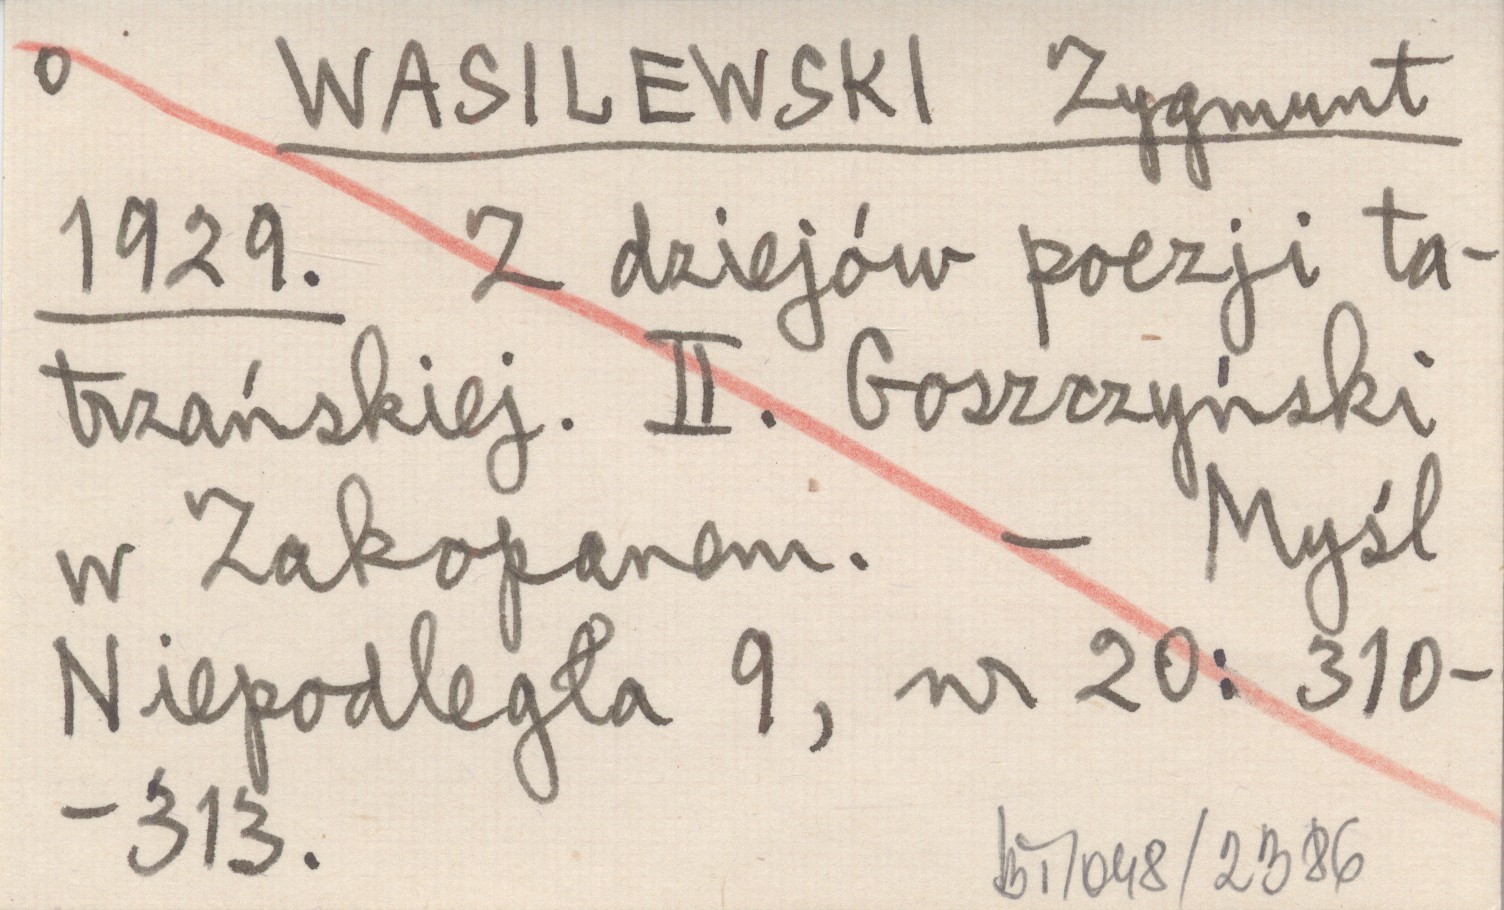 o WASILEWSKI Zygmunt
1929. Z dziejów poezji ta-
trzańskiej. II. Goszczyński
w Zakopanem. — Myśl
Niepodległa 9, nr 20: 310-
-313.
BT/048/2386